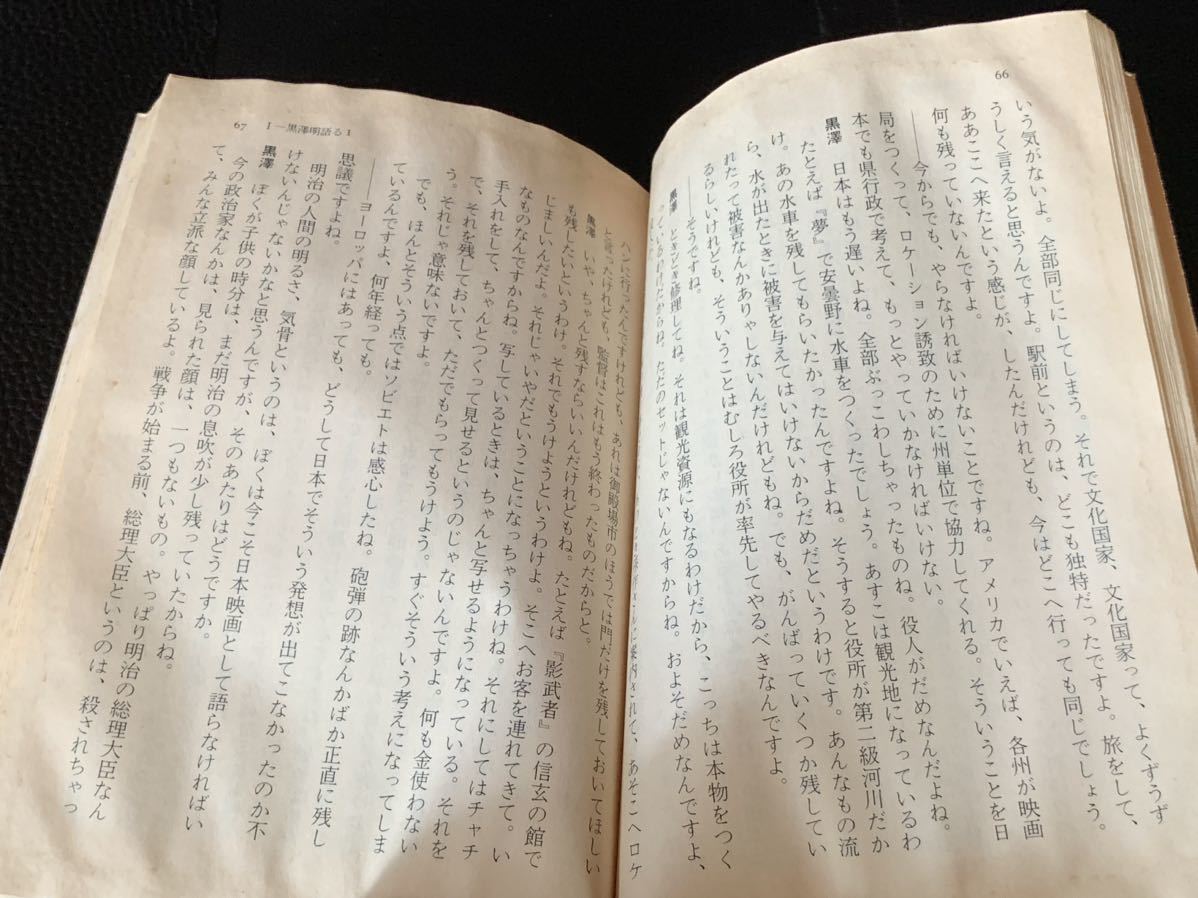 66
いう気がないよ。全部同じにしてしまう。それで文化国家、文化国家って、よくずうず
うしく言えると思うんですよ。駅前というのは、どこも独特だったですよ。旅をして、
ああここへ来たという感じが、したんだけれども、今はどこへ行っても同じでしょう。
何も残っていないんですよ。
――今からでも、やらなければいけないことですね。アメリカでいえば、各州が映画
局をつくって、ロケーション誘致のために州単位で協力してくれる。そういうことを日
本でも県行政で考えて、もっとやっていかなければいけない。
黒澤 日本はもう遅いよね。全部ぶっこわしちゃったものね。役人がだめなんだよね。
たとえば『夢』で安曇野に水車をつくったでしょう。あすこは観光地になっているわ
け。あの水車を残してもらいたかったんですよね。そうすると役所が第二級河川だか
ら、水が出たときに被害を与えてはいけないからだめだというわけです。あんなもの流
れたって被害なんかありゃしないんだけれどもね。でも、がんばっていくつか残してい
るらしいけれども、そういうことはむしろ役所が率先してやるべきなんですよ。
――そうですね。
黒澤 ときどき修理してね。それは観光資源にもなるわけだから、こっちは本物をつく
っているわけだからね。ただのセットじゃないんですからね。およそだめなんですよ、
に案内されて、あそこへロケ
67 I―黒澤明語る1
ハンに行ったんですけれども、あれは御殿場市のほうでは門だけを残しておいてほしい
と言ったけれども、監督はこれはもう終わったものだからと。
黒澤 いや、ちゃんと残すならいいんだけれどもね。たとえば『影武者』の信玄の館で
も残したいというわけ。それでもうけようというわけよ。そこへお客を連れてきて。い
じましいんだよ。それじゃいやだということになっちゃうわけね。それにしてはチャチ
なものなんですからね。写しているときは、ちゃんと写せるようになっている。それを
手入れをして、ちゃんとつくって見せるというのじゃないんですよ。何も金使わない
で、それを残しておいて、ただでもらってもうけよう。すぐそういう考えになってしま
う。それじゃ意味ないですよ。
でも、ほんとそういう点ではソビエトは感心したね。砲弾の跡なんかばか正直に残し
ているんですよ、何年経っても。
――ヨーロッパにはあっても、どうして日本でそういう発想が出てこなかったのか不
思議ですよね。
明治の人間の明るさ、気骨というのは、ぼくは今こそ日本映画として語らなければい
けないんじゃないかなと思うんですが、そのあたりはどうですか。
黒澤 ぼくが子供の時分は、まだ明治の息吹が少し残っていたからね。
今の政治家なんかは、見られた顔は、一つもないもの。やっぱり明治の総理大臣なん
て、みんな立派な顔しているよ。戦争が始まる前、総理大臣というのは、殺されちゃっ